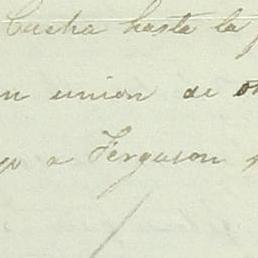 Cucha hasta la
n union de
a Ferguson